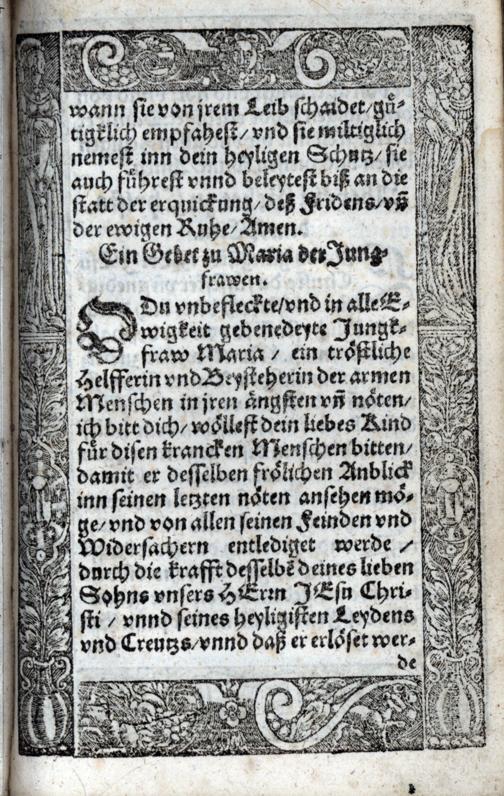 wann sie von jrem Leib schaidet/ gü-
tigklich empfahest/ vnd sie miltigklich
nemest inn dein heyligen Schutz/ sie
auch führest vnnd beleytest biß an die
statt der erquickung/ deß Fridens/ vñ
der ewigen Ruhe/ Amen.
Ein Gebet zu Maria der Jung-
frawen.
O Du vnbefleckte/ vnd in alle E-
wigkeit gebenedeyte Jungk-
fraw Maria/ ein tröstliche
Helfferin vnd Beysteherin der armen
Menschen in jren ängsten vñ nöten/
ich bitt dich/ wöllest dein liebes Kind
für disen krancken Menschen bitten/
damit er desselben frölichen Anblick
inn seinen letzten nöten ansehen mö-
ge/ vnd von allen seinen Feinden vnd
Widersachern entlediget werde/
durch die krafft desselbē deines lieben
Sohns vnsers HErrn JEsu Chri-
sti/ vnnd seines heyligisten Leydens
vnd Creutzs/ vnnd daß er erlöset wer-
de